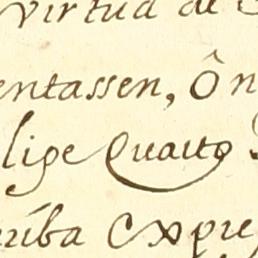 virtud de
entassen, ô n
lipe Quarto
rriba expre